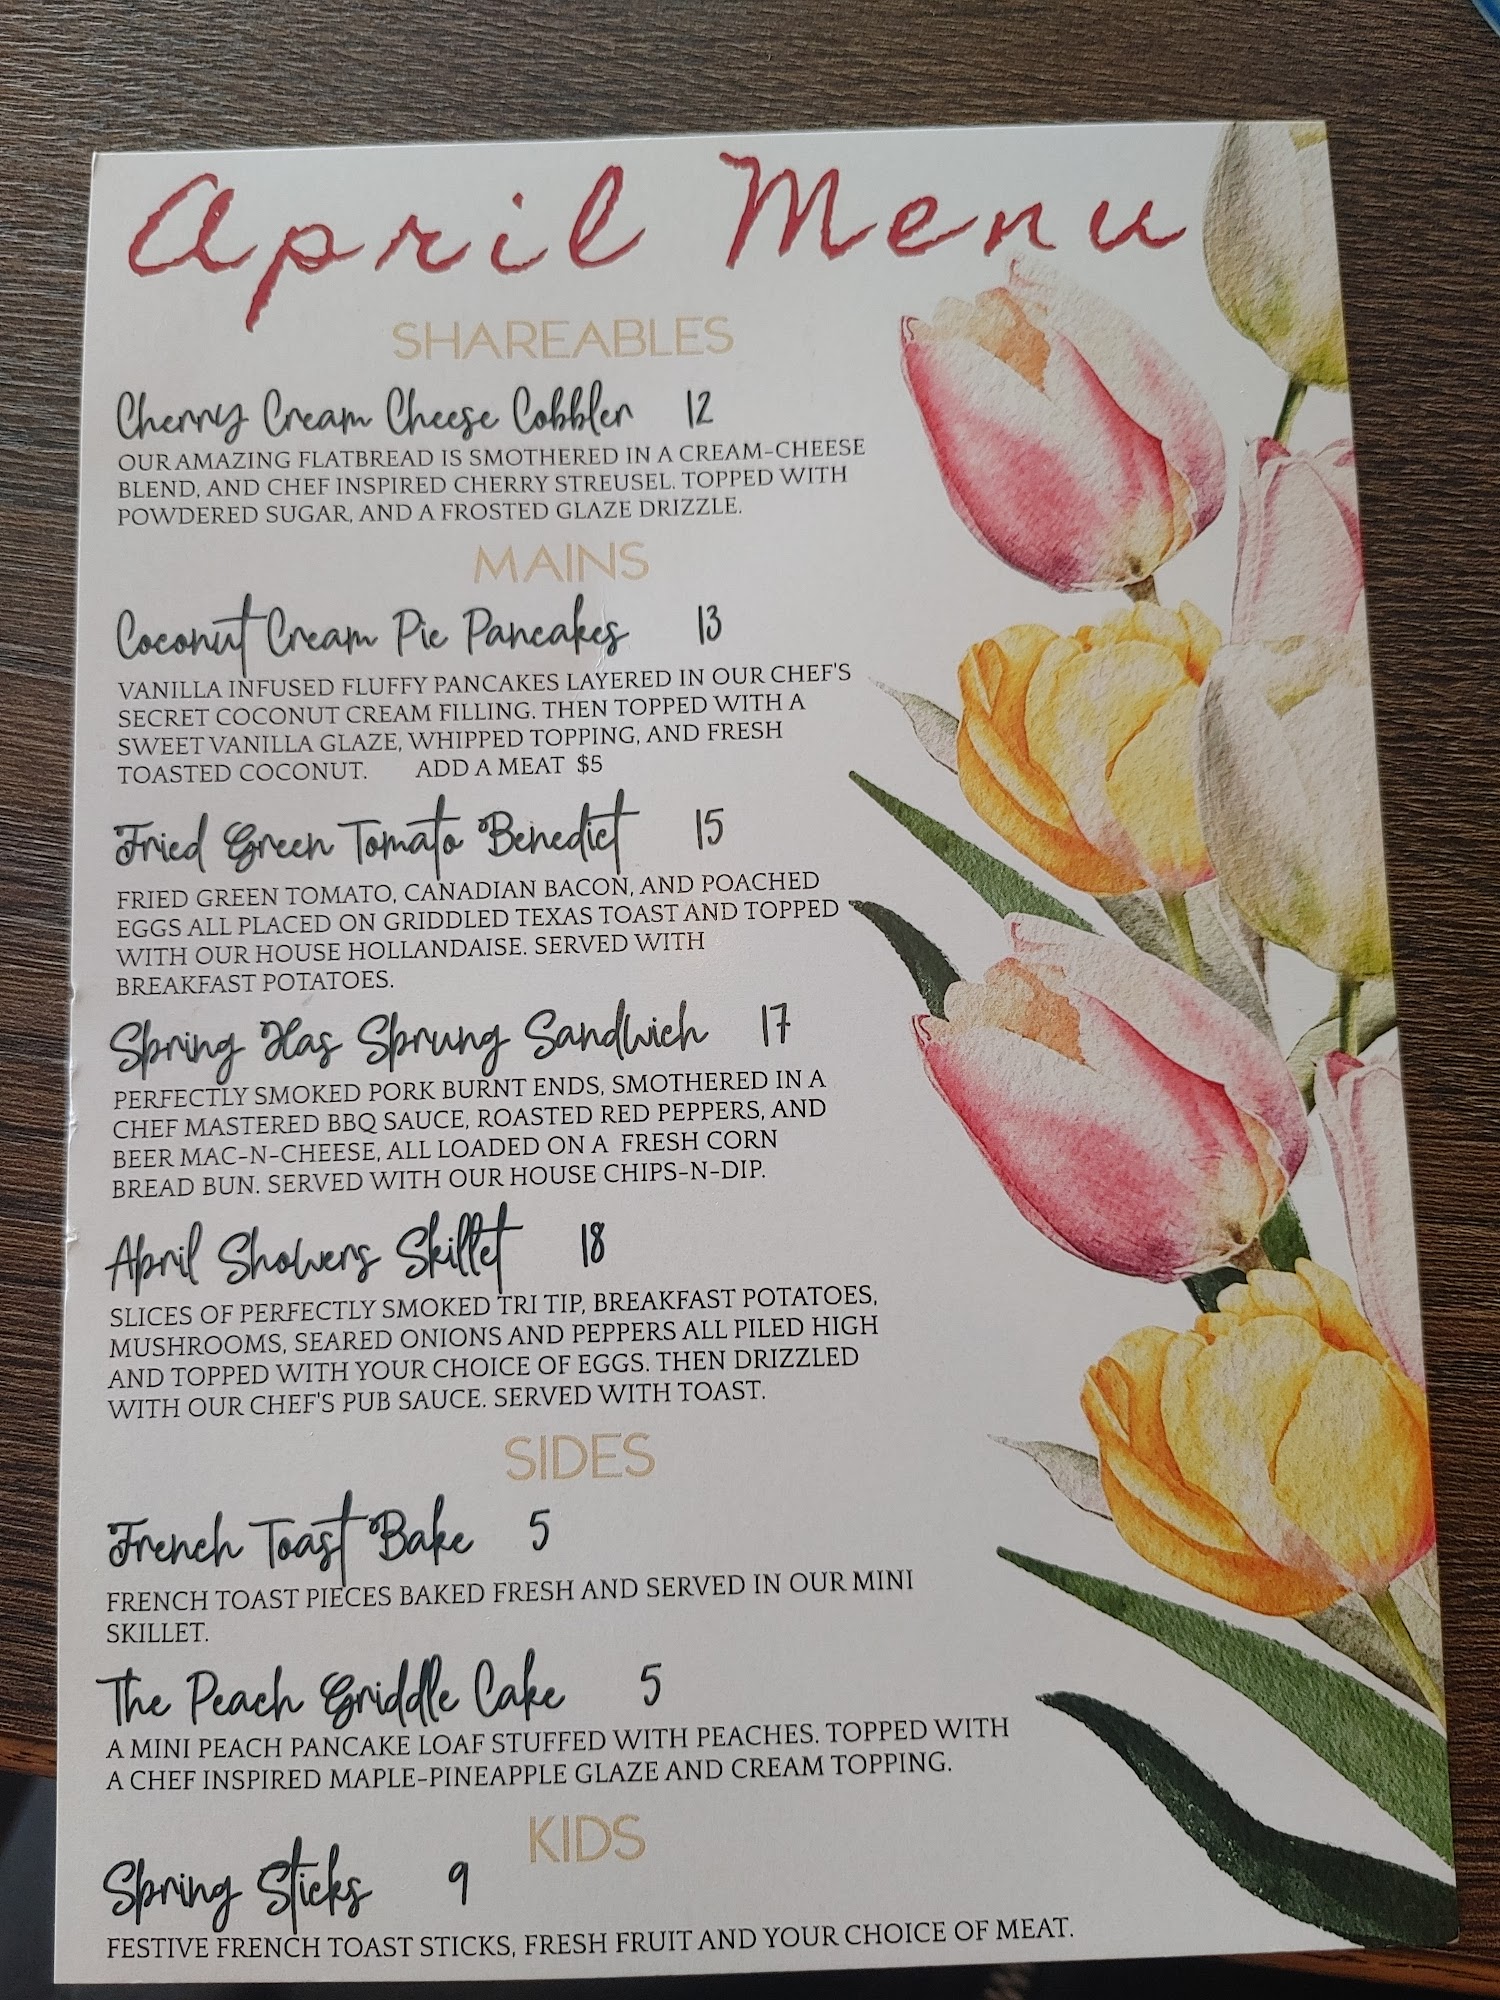 April Menu
SHAREABLES
Cherry Cream Cheese Cobbler 12
OUR AMAZING FLATBREAD IS SMOTHERED IN A CREAM-CHEESE
BLEND, AND CHEF INSPIRED CHERRY STREUSEL. TOPPED WITH
POWDERED SUGAR, AND A FROSTED GLAZE DRIZZLE.
MAINS
Coconut Cream Pie Pancakes 13
VANILLA INFUSED FLUFFY PANCAKES LAYERED IN OUR CHEF'S
SECRET COCONUT CREAM FILLING. THEN TOPPED WITH A
SWEET VANILLA GLAZE, WHIPPED TOPPING, AND FRESH
TOASTED COCONUT. ADD A MEAT $5
Fried Green Tomato Benedict 15
FRIED GREEN TOMATO, CANADIAN BACON, AND POACHED
EGGS ALL PLACED ON GRIDDLED TEXAS TOAST AND TOPPED
WITH OUR HOUSE HOLLANDAISE. SERVED WITH
BREAKFAST POTATOES.
Spring Has Sprung Sandwich 17
PERFECTLY SMOKED PORK BURNT ENDS, SMOTHERED IN A
CHEF MASTERED BBQ SAUCE, ROASTED RED PEPPERS, AND
BEER MAC-N-CHEESE, ALL LOADED ON A FRESH CORN
BREAD BUN. SERVED WITH OUR HOUSE CHIPS-N-DIP.
April Showers Skillet 18
SLICES OF PERFECTLY SMOKED TRI TIP, BREAKFAST POTATOES,
MUSHROOMS, SEARED ONIONS AND PEPPERS ALL PILED HIGH
AND TOPPED WITH YOUR CHOICE OF EGGS. THEN DRIZZLED
WITH OUR CHEF'S PUB SAUCE. SERVED WITH TOAST.
SIDES
French Toast Bake 5
FRENCH TOAST PIECES BAKED FRESH AND SERVED IN OUR MINI
SKILLET.
The Peach Griddle Cake 5
A MINI PEACH PANCAKE LOAF STUFFED WITH PEACHES. TOPPED WITH
A CHEF INSPIRED MAPLE-PINEAPPLE GLAZE AND CREAM TOPPING.
KIDS
Spring Sticks 9
FESTIVE FRENCH TOAST STICKS, FRESH FRUIT AND YOUR CHOICE OF MEAT.